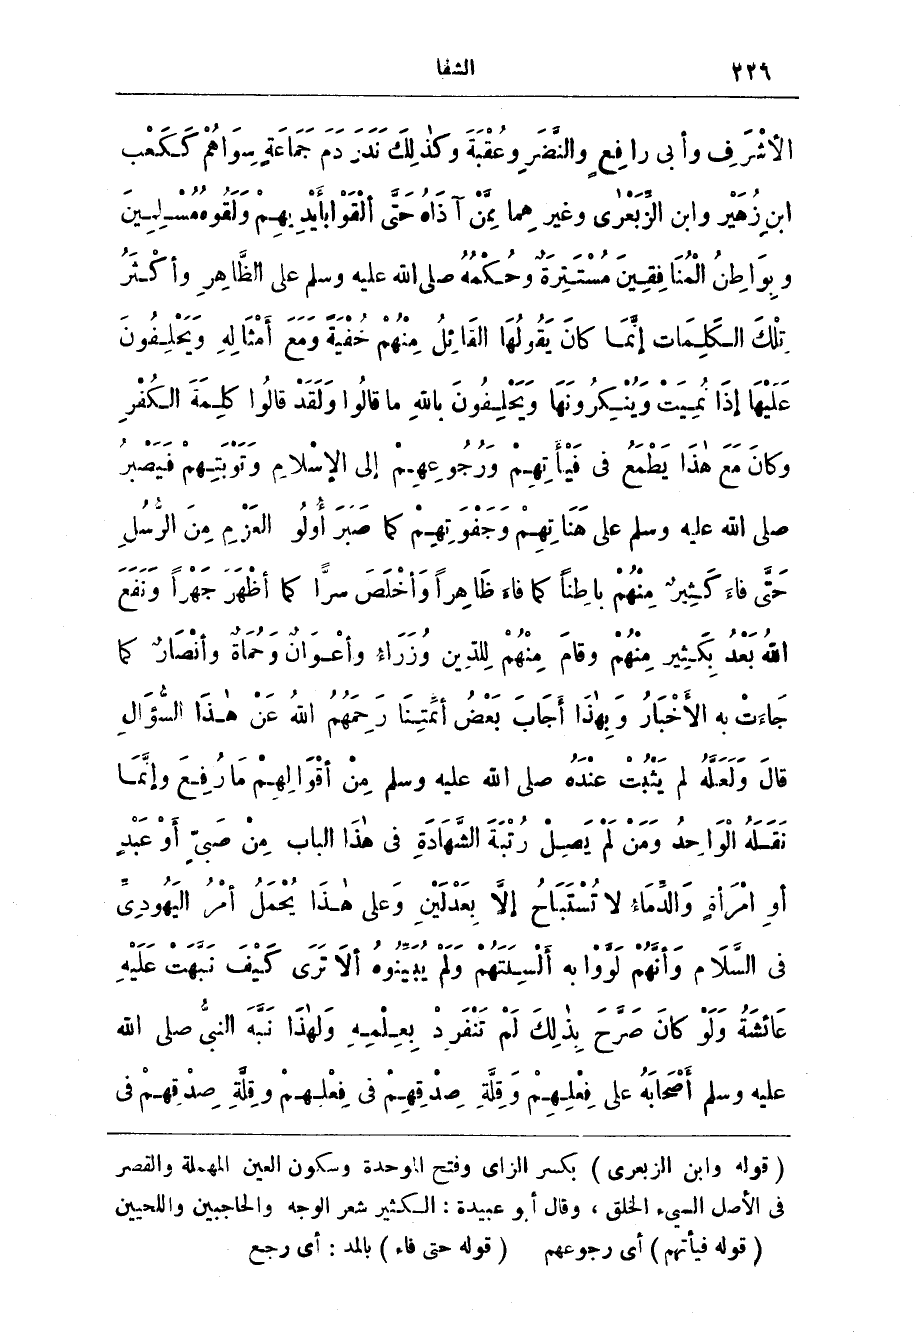 ٢٢٩ الشفا
الأَشْرَفِ وأبى رافِعٍ والنَّضْرِ وعُقْبَةَ وكَذٰلِكَ نَدَرَ دَمَ جَمَاعَةٍ سِوَاهُمْ كَكَعْبِ
ابنِ زُهَيْرٍ وابن الزِّبَعْرٰى وغيرِهِما مِمَّنْ آذَاهُ حَتَّى ألْقَوْا بأيْدِيهِمْ ولَقُوهُ مُسْلِمِينَ
وبَوَاطِنُ الْمُنَافِقِينَ مُسْتَتِرَةٌ وحُكْمُهُ صلى الله عليه وسلم على الظَّاهِرِ وأكْثَرُ
تِلْكَ الكَلِمَات إنَّمَا كانَ يَقُولُهَا القَائِلُ مِنْهُمْ خُفْيَةً ومَعَ أمْثَالِهِ ويَحْلِفُونَ
عَلَيْهَا إذَا نُمِيَتْ وَيُنْكِرُونَهَا ويَحْلِفُونَ بالله ما قالُوا ولَقَدْ قالُوا كَلِمَةَ الكُفْرِ
وكانَ مَعَ هٰذَا يَطْمَعُ فى فَيْأتِهِمْ ورُجُوعِهِمْ إلى الإسْلَامِ وتَوْبَتِهِمْ فَيَصْبِرُ
صلى الله عليه وسلم على هَنَاتِهِمْ وَجَفْوَتِهِمْ كما صَبَرَ أُولُو العَزْمِ مِنَ الرُّسُلِ
حَتَّى فاءَ كَثِيرٌ مِنْهُمْ باطِناً كما فاءَ ظَاهِراً وَأخْلَصَ سِرًّا كما أظْهَرَ جَهْراً وَنَفَعَ
اللهُ بَعْدُ بِكَثِيرٍ مِنْهُمْ وقامَ مِنْهُمْ لِلدِّينِ وُزَرَاءُ وأعْوَانٌ وَحُمَاةٌ وأنْصَارٌ كما
جَاءَتْ به الأَخْبَارُ وَبِهٰذَا أَجَابَ بَعْضُ أئِمَّتِنَا رَحِمَهُمُ اللهُ عَنْ هٰذَا السُّؤَالِ
قالَ وَلَعَلَّهُ لم يَثْبُتْ عِنْدَهُ صلى الله عليه وسلم مِنْ أقْوَالِهِمْ مَا رُفِعَ وإنَّمَا
نَقَلَهُ الْوَاحِدُ وَمَنْ لَمْ يَصِلْ رُتْبَةَ الشَّهَادَةِ فى هٰذَا الباب مِنْ صَبِىٍّ أَوْ عَبْدٍ
أو امْرَأةٍ وَالدِّمَاءُ لا تُسْتَبَاحُ إلَّا بِعَدْلَيْنِ وَعلى هٰذَا يُحْمَلُ أمْرُ الْيَهُودِىِّ
فى السَّلَامِ وَأنَّهُمْ لَوَّوْا به ألْسِنَتَهُمْ وَلَمْ يُبَيِّنُوهُ ألَا تَرَى كَيْفَ نَبَّهَتْ عَلَيْهِ
عَائشَةُ وَلَوْ كانَ صَرَّحَ بِذٰلِكَ لَمْ تَنْفَرِدْ بِعِلْمِهِ وَلِهٰذَا نَبَّهَ النبىُّ صلى الله
عليه وسلم أَصْحَابَهُ على فِعْلِهِمْ وَقِلَّةِ صِدْقِهِمْ فى فِعْلِهِمْ وقِلَّةِ صِدْقِهِمْ فى
( قوله وابن الزبعرى ) بكسر الزاى وفتح الموحدة وسكون العين المهملة والقصر
فى الأصل السيء الخلق ، وقال أبو عبيدة : الكثير شعر الوجه والحاجبين واللحيين
( قوله فيأتهم ) أى رجوعهم ( قوله حتى فاء ) بالمد : أى رجع